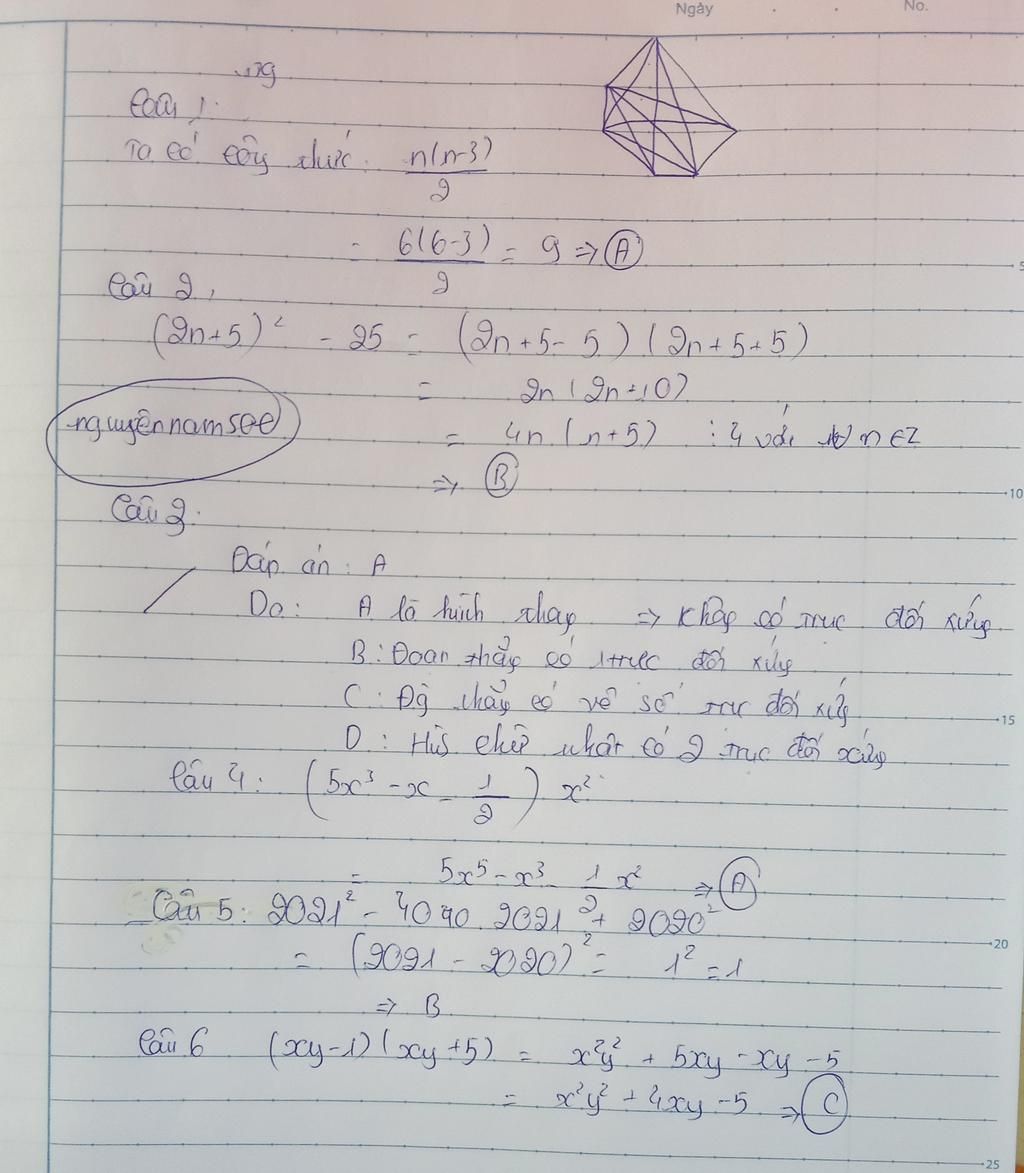 Ngày No.
Câu 1:
Ta có công thức: n(n-3)/2
= 6(6-3)/2 = 9 => A
5
Câu 2,
(2n+5)² - 25 = (2n+5-5)(2n+5+5)
= 2n(2n+10)
nguyennamsee
= 4n(n+5) ⋮ 4 với ∀ n ∈ Z
=> B
10
Câu 3:
Đáp án: A
Do: A là hình thang => Không có trục đối xứng
B: Đoạn thẳng có 1 trục đối xứng
C: Đg thẳng có vô số trục đối xứng
15
D: Hình chữ nhật có 2 trục đối xứng
Câu 4: (5x³ - x - 1/2) x²
= 5x⁵ - x³ - 1/2 x² => A
Câu 5: 2021² - 4040.2021 + 2020²
20
= (2021 - 2020)² = 1² = 1
=> B
Câu 6 (xy-1)(xy+5) = x²y² + 5xy - xy - 5
= x²y² + 4xy - 5 => C
25